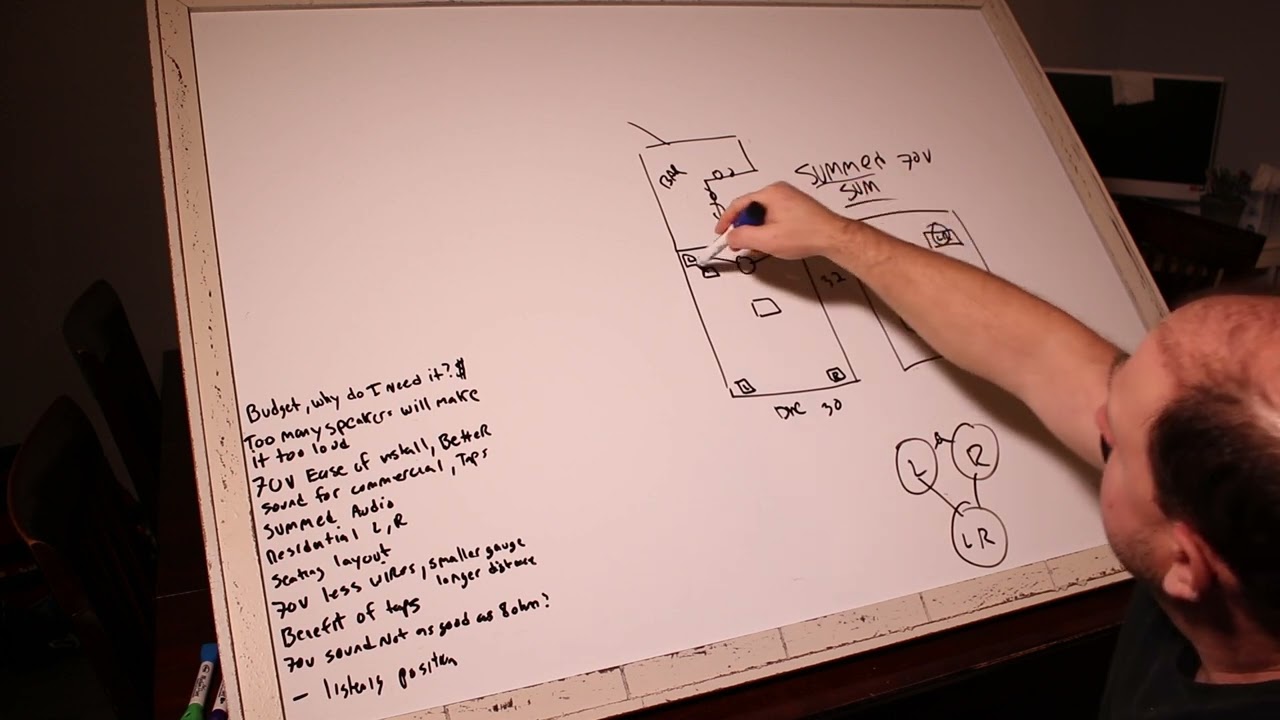 Budget, why do I need it? $
Too many speakers will make
it too loud
70V Ease of install, Better
sound for commercial, Taps
Summed Audio
Residential L, R
Seating layout
70V less wires, smaller gauge
longer distance
Benefit of taps
70V sound not as good as 8ohm?
- listenig position
BAR
SUMMED 70V
SUM
32
L
R
30
L
R
LR